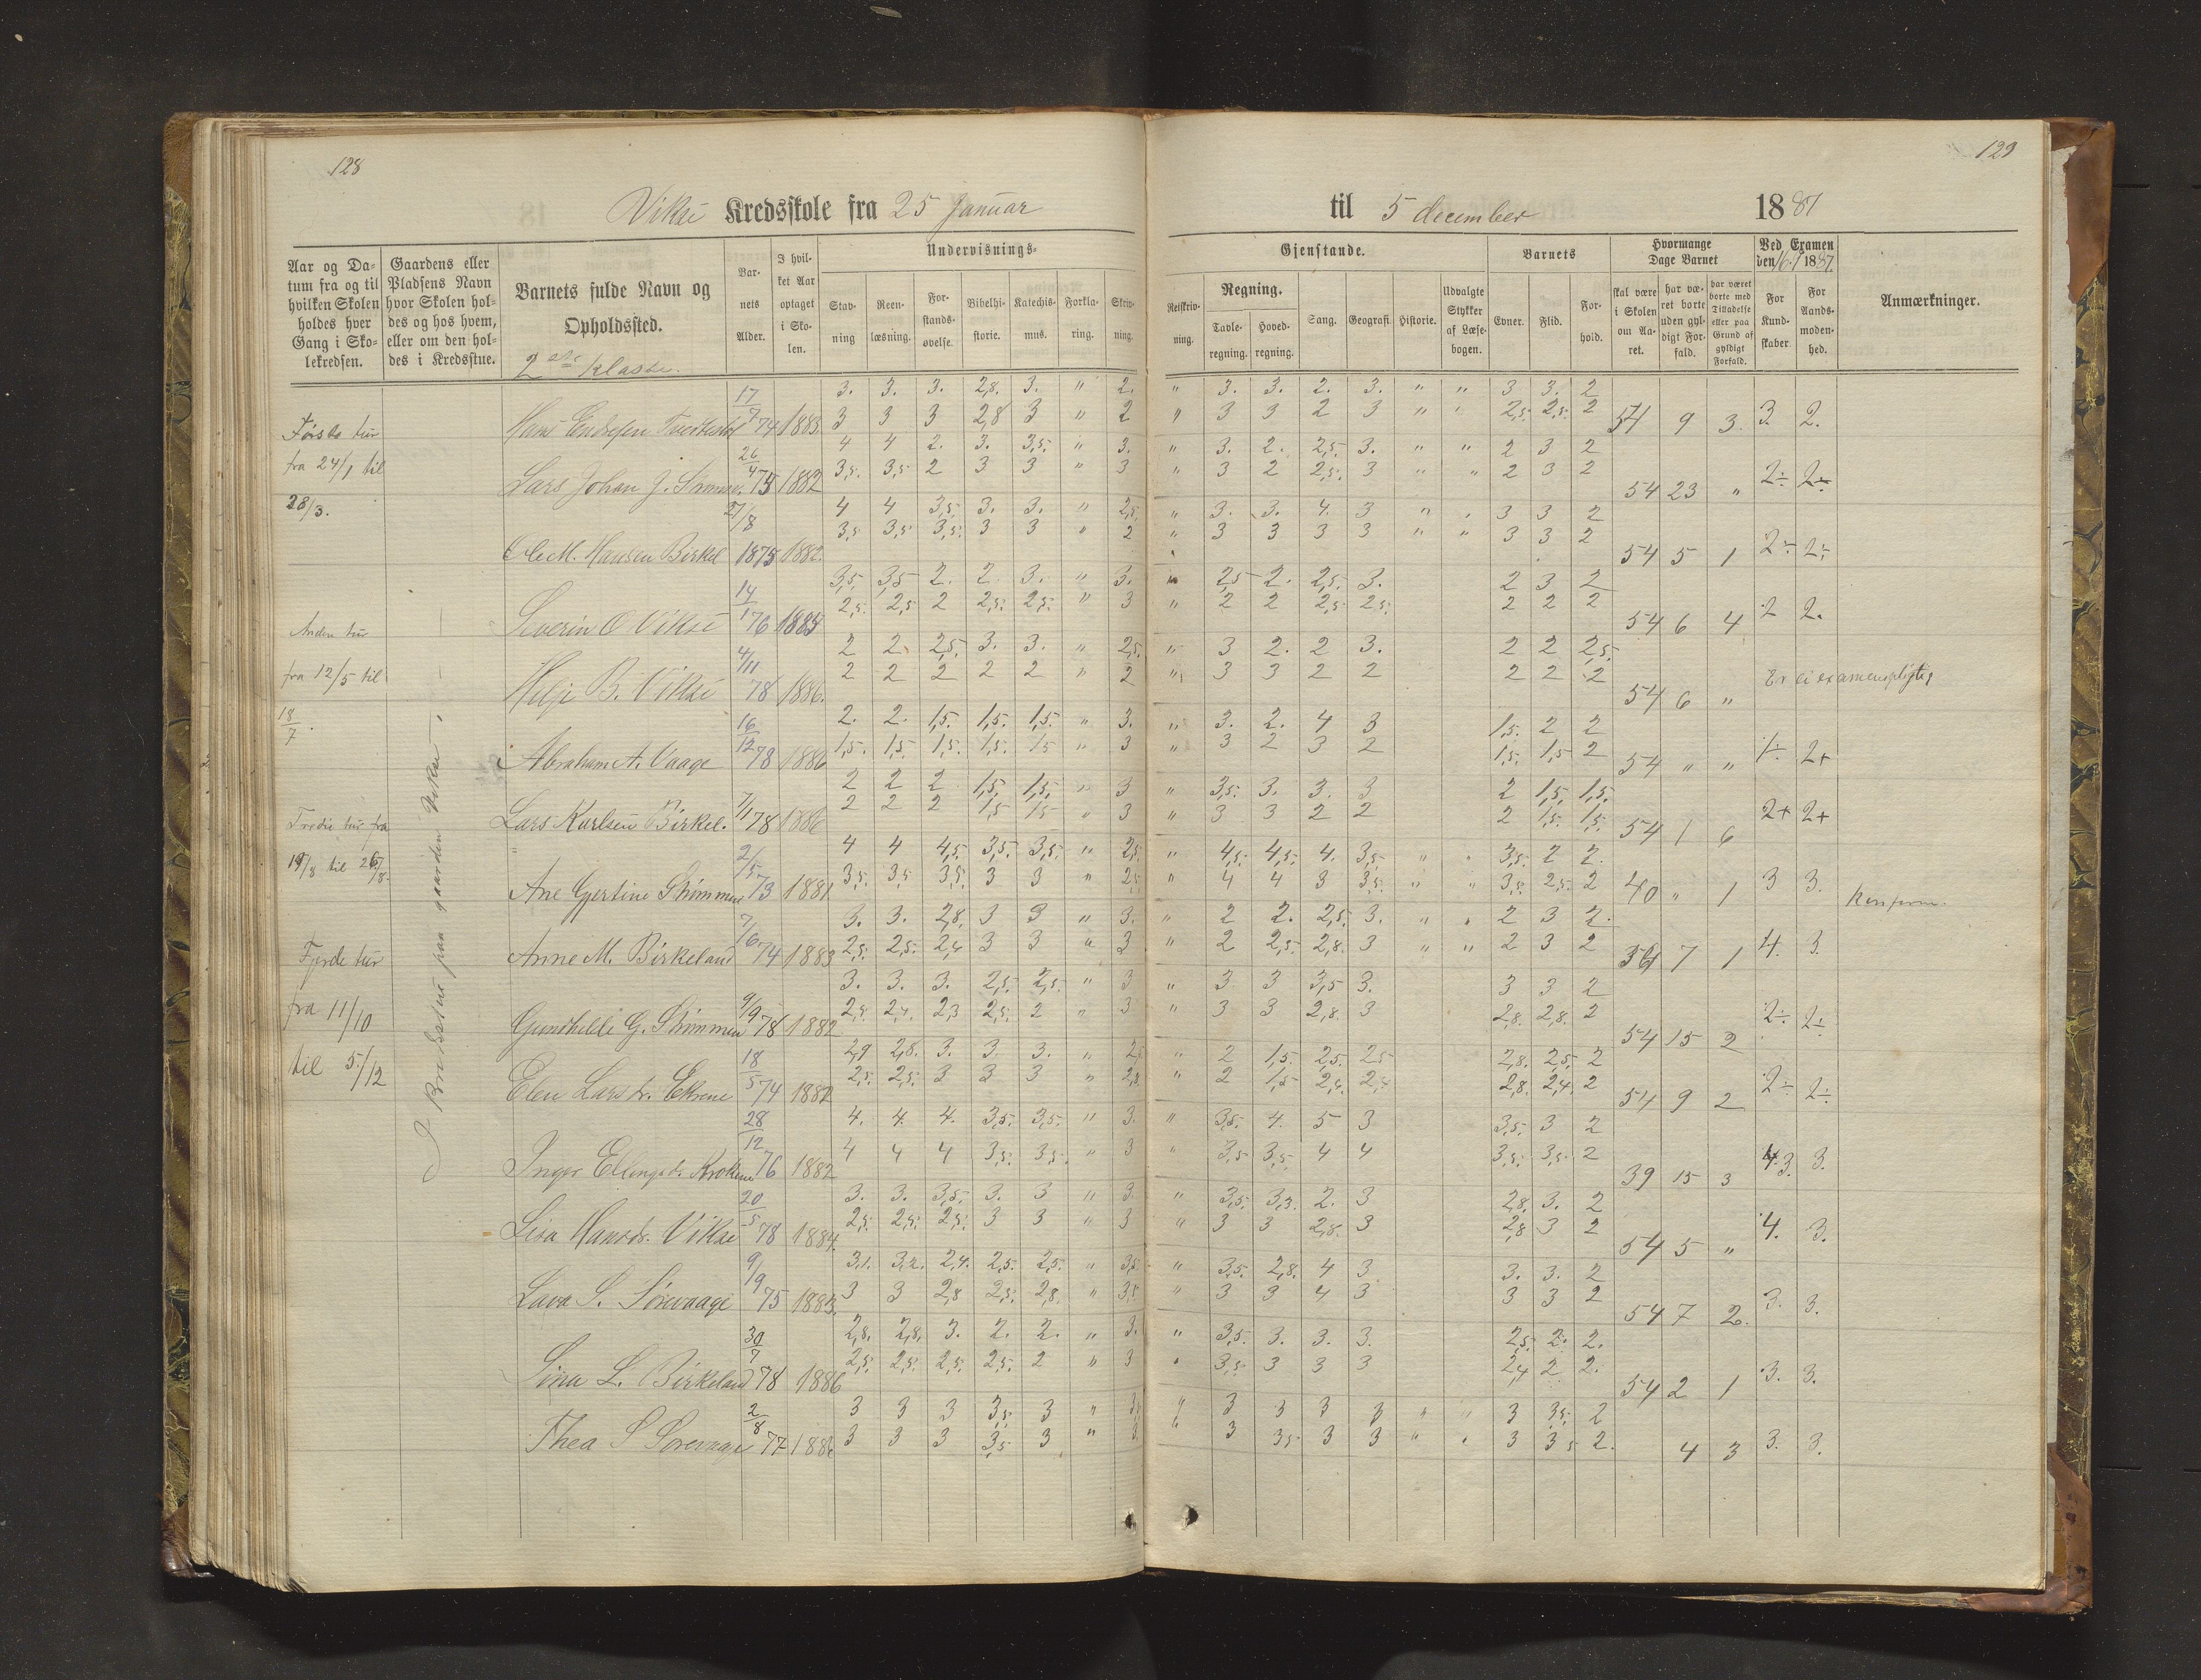 128
129
Vikse Kredsskole fra 25 Januar til 5 december 1887
Aar og Datum fra og til hvilken Skolen holdes hver Gang i Skolekredsen.
Gaardens eller Pladsens Navn hvor Skolen holdes og hos hvem, eller om den holdes i Kredsstue.
Barnets fulde Navn og Opholdssted.
2den Klasse.
Barnets Alder.
I hvilket Aar optaget i Skolen.
Undervisnings-
Gjenstande.
Stavning
Reenlæsning.
Forstandsøvelse.
Bibelhistorie.
Katechismus.
Forklaring.
Skrivning.
Retskrivning.
Regning.
Tavleregning.
Hovedregning.
Sang.
Geografi.
Historie.
Udvalgte Stykker af Læsebogen.
Barnets
Evner.
Flid.
Forhold.
Hvormange Dage Barnet
skal være i Skolen om Aaret.
har været borte uden gyldigt Forfald.
har været borte med Tilladelse eller paa Grund af gyldigt Forfald.
Ved Examen den 16/1 1887.
For Kundskaber
For Aandsmodenhed.
Anmærkninger.
3. 3. 3. 2,8. 3. " 2. " 3. 3. 2. 3. " " 3 3. 2
Første tur Hans Endresen 17/7 74 1883 3 3 3 2,8 3 " 2 " 3 3 2 3 " " 2,5. 2,5. 2 54 9 3. 3. 2.
4 4 2. 3. 3,5. " 3. " 3. 2. 2,5. 3. " " 2 3 2
fra 24/1 til Lars Johan J. 26/4 75 1882 3,5. 3,5 2 3 3 " 3 " 3 2 2,5. 3 " " 2 3 2 54 23 " 2÷ 2÷
28/3.
4 4 3,5. 3. 3. " 2,5. " 3. 3. 4. 3 " " 3 3 2
Ole M. Hansen Birkel 27/8 1875 1882. 3,5 3,5 3,5. 3 3 " 2 " 3 3 3 3 " " 3 3 2 54 5 1 2÷ 2÷
3,5 3,5 2. 2. 3. " 3. " 2,5 2. 2,5. 3. 2 3 2
Anden tur Severin O Vikse 14/1 76 1885 2,5. 2,5 2 2,5. 2,5. " 3 " 2 2 2,5 2,5. 2 2 2 54 6 4 2 2.
2 2. 2,5. 3. 3. " 2,5. " 3 2. 2 3. 2 2 2,5.
fra 12/5 til Helje B. Vikse 4/11 78 1886. 2 2 2 2 2 " 2 " 3 3 2 2 2 2 2 54 6 " Er ei examenspligtig
18/7.
2. 2. 1,5. 1,5. 1,5. " 3. " 3. 2. 4 3 1,5. 2 2
Abraham A. Vaage 16/12 78 1886 1,5. 1,5 1,5. 1,5. 1,5 " 3 " 3 2 3 2 1,5. 1,5 2 54 " " 1÷ 2+
2 2 2 1,5. 1,5. " 3 " 3,5. 3. 3. 3 2 1,5. 1,5.
Tredie tur fra Lars Karlsen Birkel. 7/1 78 1886 2 2 2 1,5 1,5 " 3 " 3 3 2 2 2 1,5. 1,5. 54 1 6 2+ 2+
4 4 4,5. 3,5. 3,5. " 2,5. " 4,5. 4,5. 4. 3,5. " " 3,5. 2 2.
19/8 til 26/8. Ane Gjertine Skimmen 2/5 73 1881 3,5. 3,5 3,5. 3 3 " 2,5 " 4 4 3 3,5. " " 3,5. 2,5. 2 40 " 1 3 3. Konfirm.
3. 3. 2,8. 3 3 " 3. " 2 2. 2,5. 3. " " 2 3 2.
Fjerde tur Anne M. Birkeland 7/6 74 1883 2,5. 2,5. 2,4 3 3 " 3 " 2 2,5. 2,8. 3 " " 2 3 2 7 1 4. 3.
3. 3. 3. 2,5. 2,5. " 3 " 3 3 3,5 3. 3 3 2
fra 11/10 Gundhilde G. Skimmen 9/9 78 1882 2,5. 2,4. 2,3 2,5. 2 " 3 " 3 3 2,8. 3 2,8. 2,8. 2 54 15 2 2÷ 2÷
2,9 2,8. 3. 3. 3. " 2,5 " 2 1,5. 2,5. 2,5 2,8. 2,5. 2
til 5/12 Elen Larsdr. Ekrene 18/5 74 1882 2,5. 2,5. 3 3 3 " 2,8. " 2 1,5 2,4. 2,4 2,8. 2,4. 2 54 9 2 2÷ 2÷
4. 4. 4. 3,5. 3,5. " 3. " 3,5. 4. 5 3 3,5. 3 2
Inger Ellingsdr. Krokene 28/12 76 1882 4 4 4 3,5. 3,5. " 3 " 3,5 3,5. 4 4 3,5. 3,5. 2 39 15 3 3. 3.
3. 3. 3,5. 3. 3 " 3. " 3,5. 3,3. 2. 3 2,8. 3. 2
Lisa Hansdr. Vikse 20/5 78 1884. 2,5. 2,5. 2,5. 3 3 " 3 " 3 3 2,8. 3 2,8 3 2 54 5 " 4. 3.
3,1. 3,2. 2,4. 2,5. 2,5. " 3,5. " 3,5. 2,8. 4 3 3. 3. 2
Lava S. Sørevaage 9/9 75 1883. 3 3 2,8 2,5. 2,8. " 3,5 " 3 3 4 3 3 3 2 54 7 2. 3. 3.
2,8. 2,8. 3. 2. 2. " 3. " 3,5. 3. 3. 3. 2,5. 2. 2.
Sina L. Birkeland 30/7 78 1886 2,5. 2,5. 2,5. 2,5. 2 " 3 " 3,5. 3 3 3 2,4 2 2. 54 2 1 3. 3.
3 3 3 3,5. 3 " 3. " 3 3 3 3 " " 3 3,5. 2
Thea S Sørevaage 2/8 77 188 3 3 3 3,5 3 " 3. " 3 3,5 3 3 " " 3 3,5 2. 4 3 3. 3.
I paa gaarden Vikse